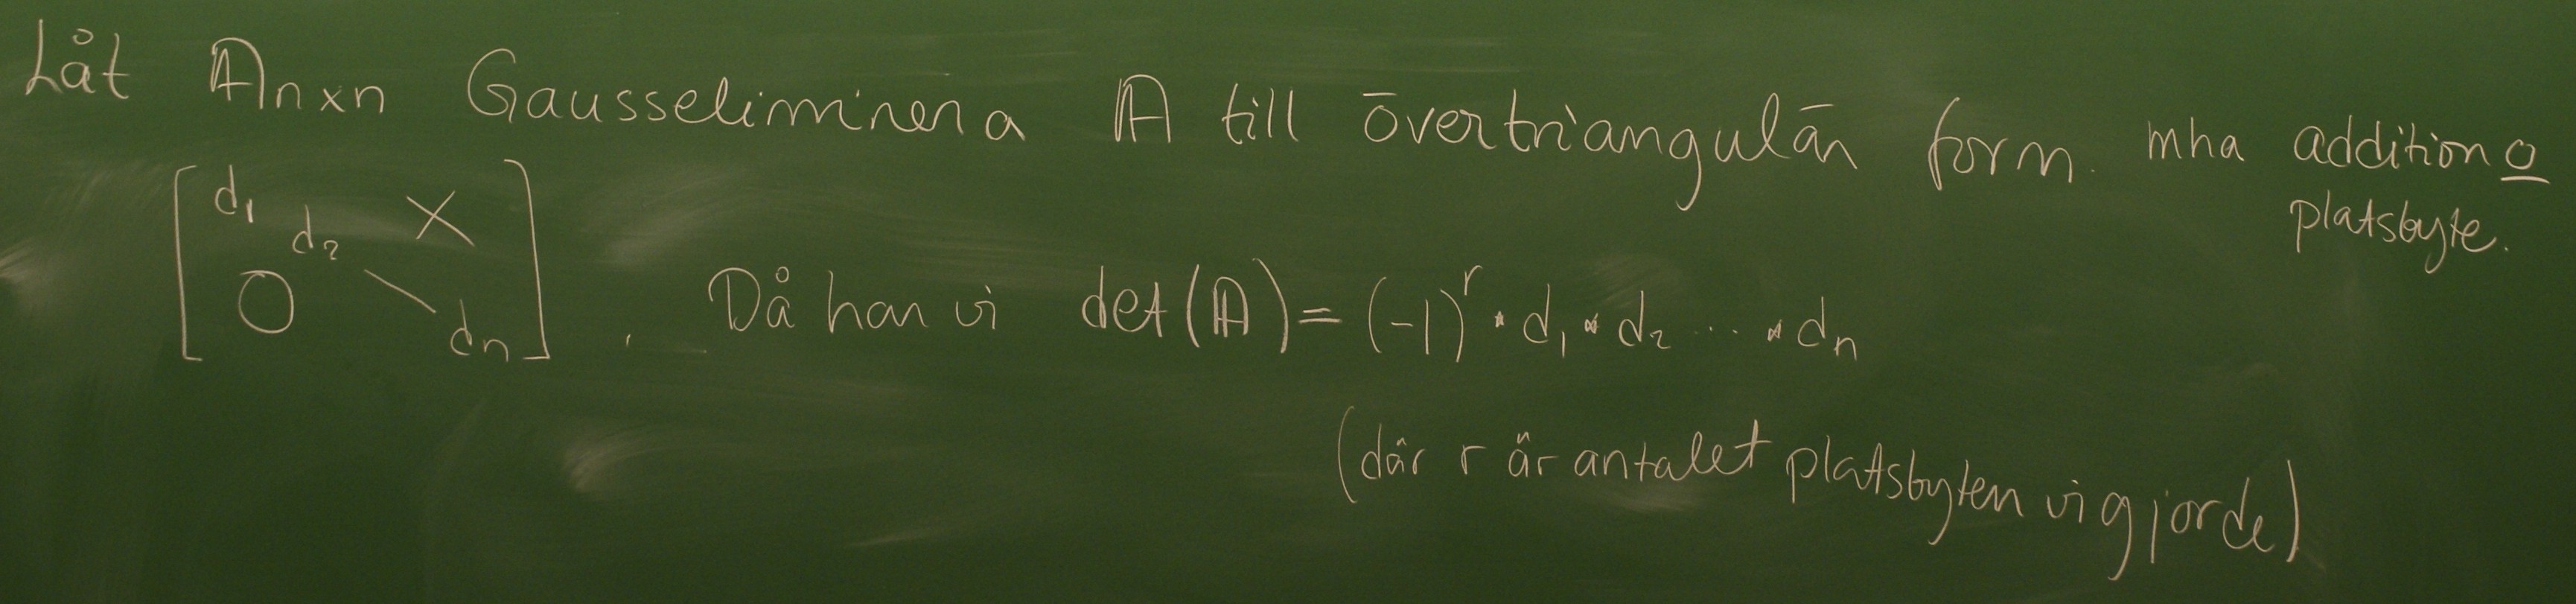 Låt 𝔸n×n Gausseliminera 𝔸 till övertriangulär form. mha addition o
platsbyte.
[d₁ d₂ X O \ dn]. Då har vi det(𝔸) = (-1)^r · d₁ · d₂ ... · dn
(där r är antalet platsbyten vi gjorde)